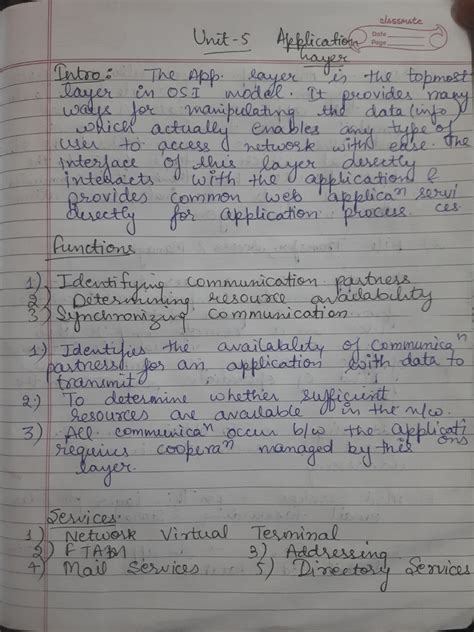 classmate
Date
Page
Unit-5 Application
Layer
Intro: The App. layer is the topmost
layer in OSI model. It provides many
ways for manipulating the data (info)
which actually enables any type of
user to access network with ease. The
interface of this layer directly
interacts with the application &
provides common web applicaⁿ servi
directly for application process. ces
Functions
1) Identifying communication partness
2) Determining resource availability
3) Synchronizing communication
1) Identifies the availability of communicaⁿ
partness for an application with data to
transmit
2.) To determine whether sufficient
resources are available in the n/w.
3) All communicaⁿ occur b/w the applicati
requires cooperaⁿ managed by this ons
layer.
Services:
1) Network Virtual Terminal
2) FTAM 3) Addressing
4) Mail Services 5) Directory Services